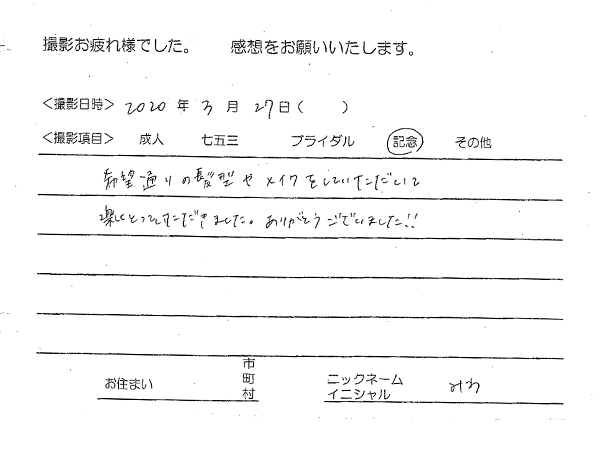 撮影お疲れ様でした。 感想をお願いいたします。
＜撮影日時＞ 2020 年 3 月 27日 ( )
＜撮影項目＞ 成人 七五三 ブライダル 記念 その他
希望通りの髪型や メイクをしていただいて
楽しくとっていただきました。ありがとうございました!!
お住まい 市町村 ニックネーム イニシャル みわ